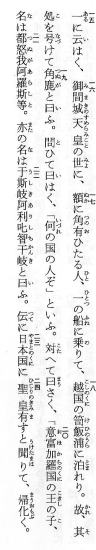 一に云はく、御間城天皇の世に、額に角有ひたる人、一つの船に乗りて、越国の笥飯浦に泊れり。故、其
処を号けて角鹿と曰ふ。問ひて曰はく、「何の国の人ぞ」といふ。対へて曰さく、「意富加羅国の王の子、
名は都怒我阿羅斯等。亦の名は于斯岐阿利叱智干岐と曰ふ。伝に日本国に聖皇有すと聞りて、帰化く。